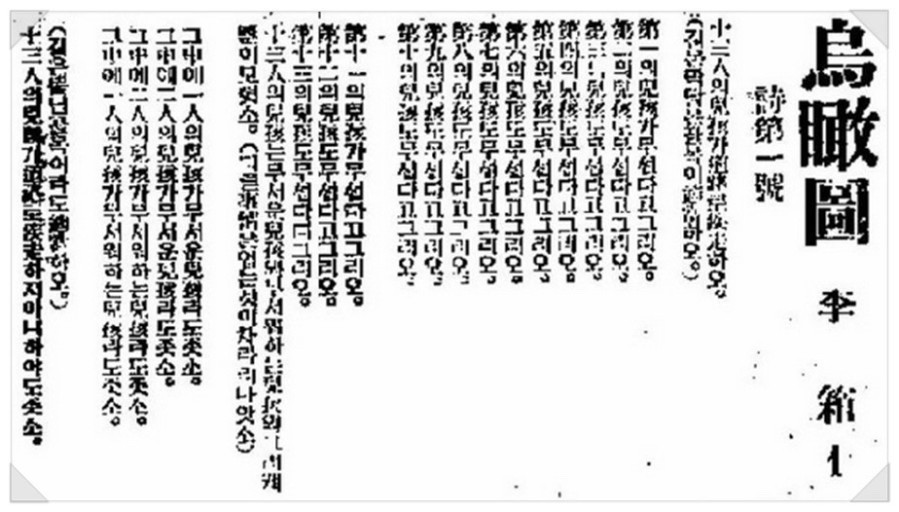 烏瞰圖
李 箱
1
詩第一號
十三人의兒孩가道路로疾走하오。
(길은막달은골목이適當하오。)
第一의兒孩가무섭다고그리오。
第二의兒孩도무섭다고그리오。
第三의兒孩도무섭다고그리오。
第四의兒孩도무섭다고그리오。
第五의兒孩도무섭다고그리오。
第六의兒孩도무섭다고그리오。
第七의兒孩도무섭다고그리오。
第八의兒孩도무섭다고그리오。
第九의兒孩도무섭다고그리오。
第十의兒孩도무섭다고그리오。
第十一의兒孩가무섭다고그리오。
第十二의兒孩도무섭다고그리오。
第十三의兒孩도무섭다고그리오。
十三人의兒孩는무서운兒孩와무서워하는兒孩와그러케
뿐이모혓소。(다른事情은업는것이차라리나앗소)
그中에一人의兒孩가무서운兒孩라도좃소。
그中에二人의兒孩가무서운兒孩라도좃소。
그中에二人의兒孩가무서워하는兒孩라도좃소。
그中에一人의兒孩가무서워하는兒孩라도좃소。
(길은뚤닌골목이라도適當하오。)
十三人의兒孩가道路로疾走하지아니하야도좃소。